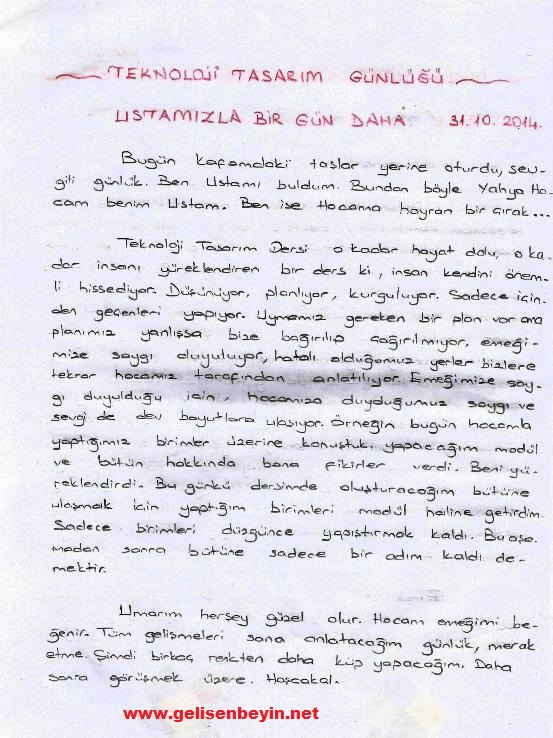 TEKNOLOJİ TASARIM GÜNLÜĞÜ
USTAMIZLA BİR GÜN DAHA 31.10.2014.
Bugün kafamdaki taşlar yerine oturdu, sev-
gili günlük. Ben Ustamı buldum. Bundan böyle Yahya Ho-
cam benim Ustam. Ben ise Hocama hayran bir çırak...
Teknoloji Tasarım Dersi o kadar hayat dolu, o ka-
dar insanı yüreklendiren bir ders ki, insan kendini önem-
li hissediyor. Düşünüyor, planlıyor, kurguluyor. Sadece için-
den geçenleri yapıyor. Uymamız gereken bir plan var ama
planımız yanlışsa bize bağırılıp çağırılmıyor, emeği-
mize saygı duyuluyor, hatalı olduğumuz yerler bizlere
tekrar hocamız tarafından anlatılıyor. Emeğimize say-
gı duyulduğu için, hocamıza duyduğumuz saygı ve
sevgi de dev boyutlara ulaşıyor. Örneğin bugün hocamla
yaptığımız birimler üzerine konuştuk, yapacağım modül
ve bütün hakkında bana fikirler verdi. Beni yü-
reklendirdi. Bu günkü dersimde oluşturacağım bütüne
ulaşmak için yaptığım birimleri modül haline getirdim.
Sadece birimleri düzgünce yapıştırmak kaldı. Bu aşa-
madan sonra bütüne sadece bir adım kaldı de-
mektir.
Umarım herşey güzel olur. Hocam emeğimi be-
ğenir. Tüm gelişmeleri sana anlatacağım günlük, merak
etme. Şimdi birkaç renkten daha küp yapacağım. Daha
sonra görüşmek üzere. Hoşçakal.
www.gelisenbeyin.net